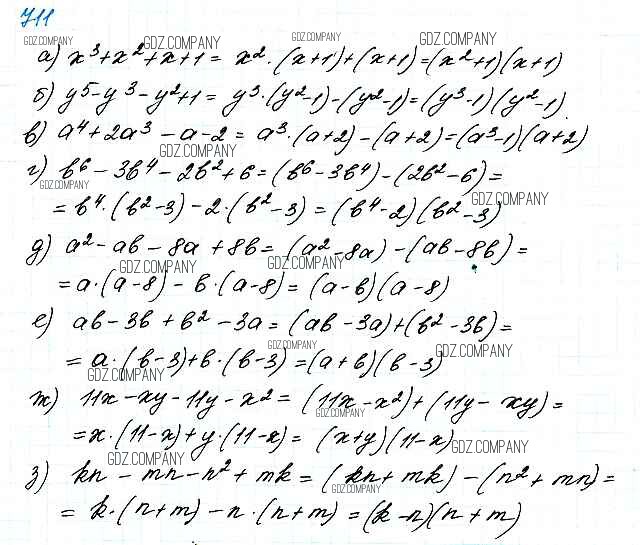 711
GDZ.COMPANY GDZ.COMPANY GDZ.COMPANY GDZ.COMPANY
а) x³+x²+x+1= x²·(x+1)+(x+1)=(x²+1)(x+1)
б) y⁵-y³-y²+1= y³·(y²-1)-(y²-1)=(y³-1)(y²-1).
в) a⁴+2a³-a-2= a³·(a+2)-(a+2)=(a³-1)(a+2)
GDZ.COMPANY
г) b⁶-3b⁴-2b²+6=(b⁶-3b⁴)-(2b²-6)=
GDZ.COMPANY GDZ.COMPANY
= b⁴·(b²-3)-2·(b²-3)=(b⁴-2)(b²-3)
д) a²-ab-8a+8b=(a²-8a)-(ab-8b)=
GDZ.COMPANY GDZ.COMPANY
= a·(a-8)-b·(a-8)=(a-b)(a-8)
е) ab-3b+b²-3a=(ab-3a)+(b²-3b)=
GDZ.COMPANY GDZ.COMPANY
= a·(b-3)+b·(b-3)=(a+b)(b-3)
GDZ.COMPANY
ж) 11x-xy-11y-x²=(11x-x²)+(11y-xy)=
GDZ.COMPANY
= x·(11-x)+y·(11-x)=(x+y)(11-x)
GDZ.COMPANY GDZ.COMPANY
з) kn-mn-n²+mk=(kn+mk)-(n²+mn)=
GDZ.COMPANY
= k·(n+m)-n·(n+m)=(k-n)(n+m)